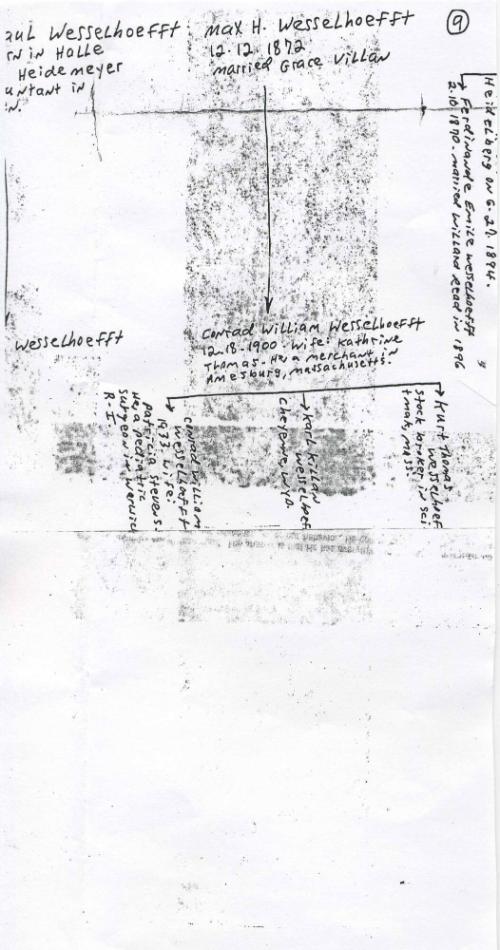 aul Wesselhoefft
rn in Holle
Heidemeyer
untant in
n.
Max H. Wesselhoefft
12.12.1872
married Grace Villan
9
Heidelberg on 6-27-1894.
Ferdinande Emile Wesselhoefft
2.10.1870. married Willard Read in 1896
Wesselhoefft
Conrad William Wesselhoefft
12.18.1900. Wife: Kathrine
Thomas. He, a merchant in
Amesbury, Massachusetts.
Conrad William
Wesselhoefft
1933. Wife:
Patricia Stevens.
He, a pediatric
surgeon in Warwick
R.I.
Karl Killan
Wesselhoef
Cheyenne, WYO.
Kurt Thomas
Wesselhoef
stock broker in Sci
mass.